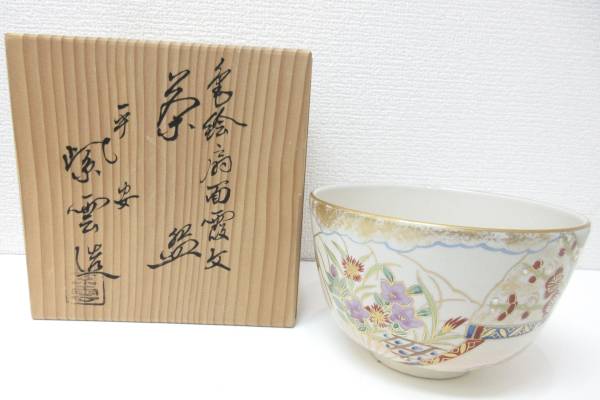 色絵扇面霞文
茶盌
平安
紫雲造